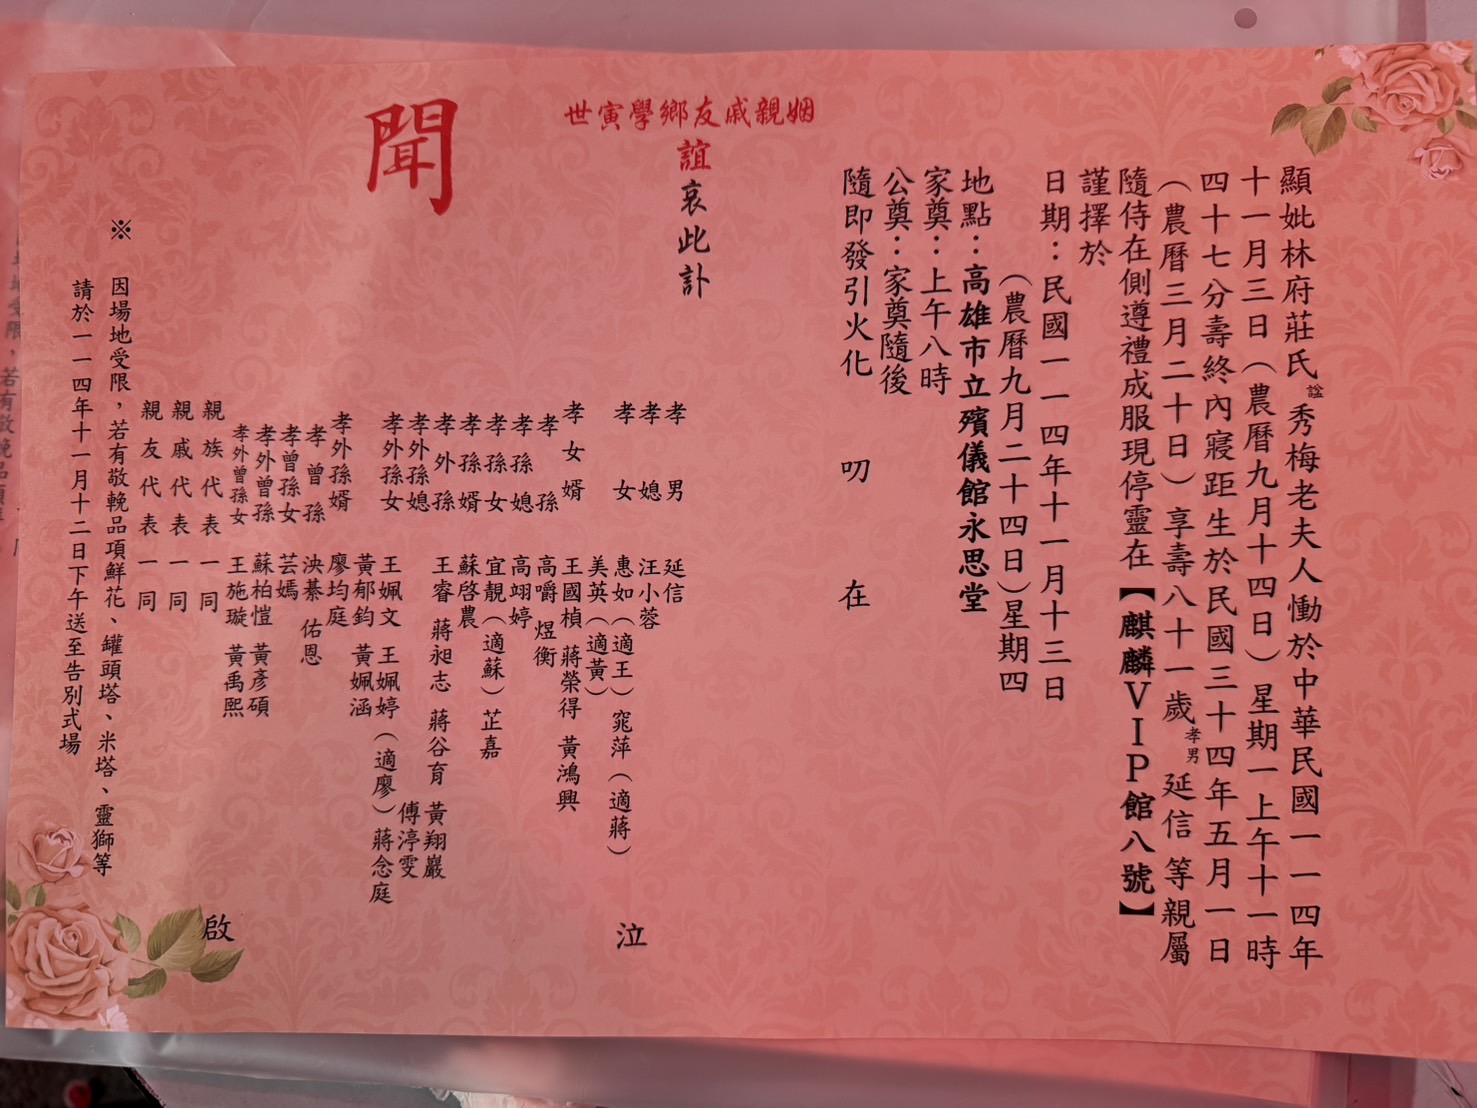 顯妣林府莊氏諡秀梅老夫人慟於中華民國一一四年
十一月三日（農曆九月十四日）星期一上午十一時
四十七分壽終內寢距生於民國三十四年五月一日
（農曆三月二十日）享壽八十一歲孝男延信等親屬
隨侍在側遵禮成服現停靈在【麒麟VIP館八號】
謹擇於
日期：民國一一四年十一月十三日
（農曆九月二十四日）星期四
地點：高雄市立殯儀館永思堂
家奠：上午八時
公奠：家奠隨後
隨即發引火化 叨在
姻親戚友鄉學寅世
誼哀此訃
聞
孝男 延信
孝媳 汪小蓉
孝女 惠如（適王）窕萍（適蔣）
美英（適黃）
孝女婿 王國楨 蔣榮得 黃鴻興
孝孫 高嚼 煜衡
孝孫媳 高翊婷
孝孫女 宜靚（適蘇）芷嘉
孝孫婿 蘇啓農
孝外孫 王睿 蔣昶志 蔣谷育 黃翔巖
孝外孫媳 傅渟雯
孝外孫女 王姵文 王姵婷（適廖）蔣念庭
黃郁鈞 黃姵涵
孝外孫婿 廖均庭
孝曾孫 泱綦 佑恩
孝曾孫女 芸嫣
孝外曾孫 蘇柏愷 黃彥碩
孝外曾孫女 王施璇 黃禹熙
泣
親族代表一同
親戚代表一同
親友代表一同
啟
※ 因場地受限，若有敬輓品項鮮花、罐頭塔、米塔、靈獅等
請於一一四年十一月十二日下午送至告別式場